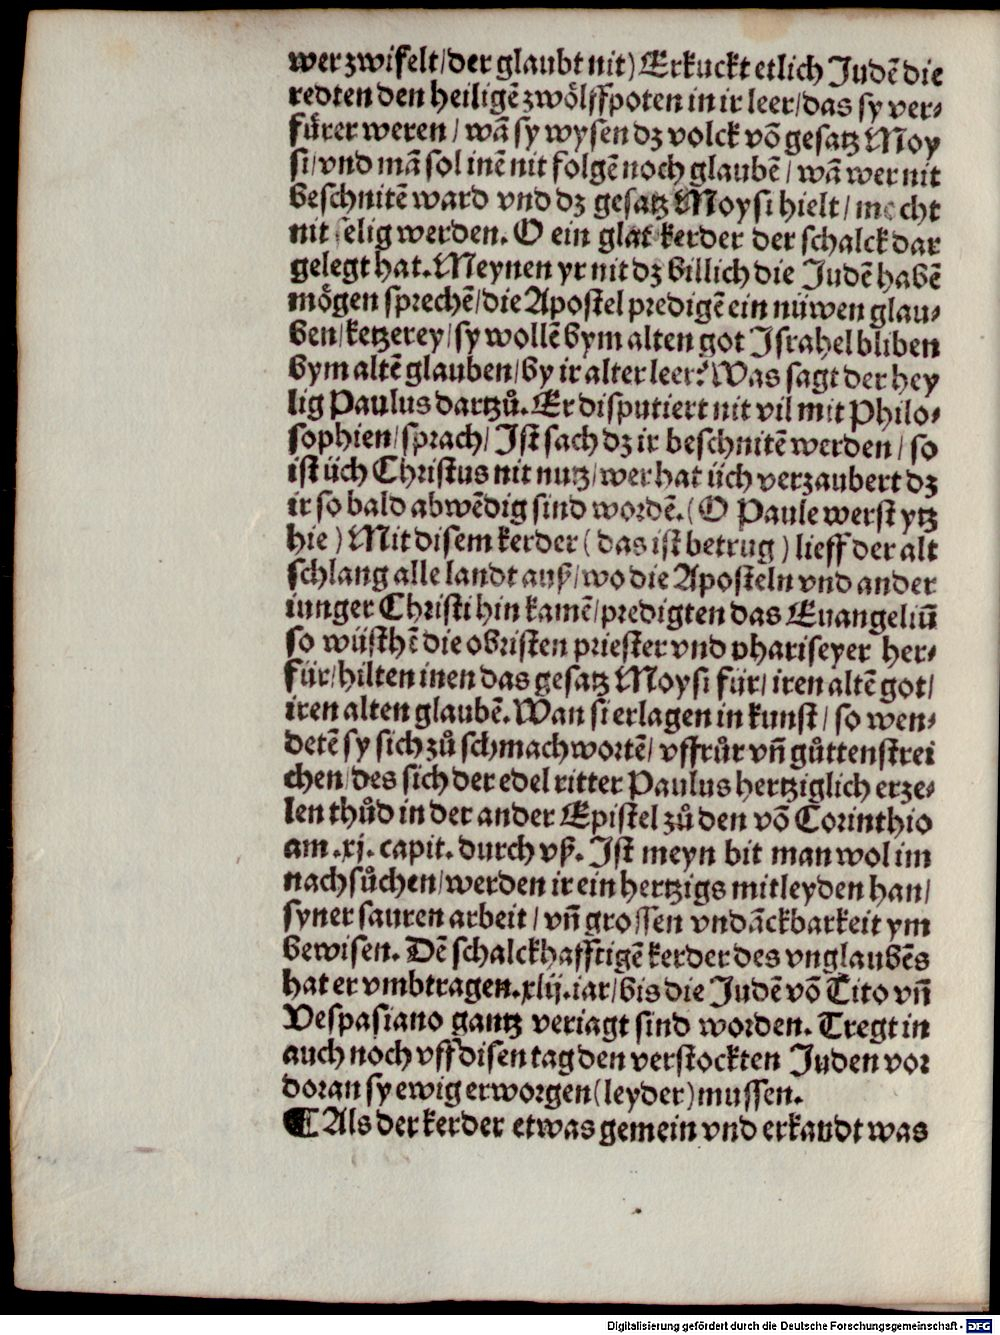 wer zwifelt/der glaubt nit) Erkuckt etlich Judē die
redten den heiligē zwölffpoten in ir leer/das sy ver⸗
fürer weren/ wā sy wysen dz volck vō gesatz Moy
si/vnd mā sol inē nit folgē noch glaubē/ wā wer nit
beschnitē ward vnd dz gesatz Moysi hielt/ mocht
nit selig werden. O ein glat kerder der schalck dar
gelegt hat. Meynen yr nit dz billich die Judē habē
mögen sprechē/die Apostel predigē ein nüwen glau⸗
ben/ketzerey/sy wollē bym alten got Israhel bliben
bym altē glauben/by ir alter leer? Was sagt der hey
lig Paulus dartzů. Er disputiert nit vil mit Philo⸗
sophien/sprach/ Ist sach dz ir beschnitē werden/ so
ist üch Christus nit nutz/wer hat üch verzaubert dz
ir so bald abwēdig sind wordē.(O Paule werst ytz
hie) Mit disem kerder (das ist betrug) lieff der alt
schlang alle landt auß/wo die Aposteln vnd ander
iunger Christi hin kamē/predigten das Euangeliū
so wüsthē die obristen priester vnd phariseyer her⸗
für/hilten inen das gesatz Moysi für/ iren altē got/
iren alten glaubē. Wan si erlagen in kunst/ so wen⸗
detē sy sich zů schmachwortē/ vffrůr vñ gůttenstrei
chen/des sich der edel ritter Paulus hertziglich erze⸗
len thůd in der ander Epistel zů den vō Corinthio
am .xj. capit. durch vß. Ist meyn bit man wol im
nachsůchen/werden ir ein hertzigs mitleyden han/
syner sauren arbeit/ vñ grossen vndāckbarkeit ym
bewisen. Dē schalckhafftigē kerder des vnglaubēs
hat er vmbtragen.xlij.iar/bis die Judē vō Tito vñ
Vespasiano gantz veriagt sind worden. Tregt in
auch noch vff disen tag den verstockten Juden vor
doran sy ewig erworgen(leyder)mussen.
¶ Als der kerder etwas gemein vnd erkandt was
Digitalisierung gefördert durch die Deutsche Forschungsgemeinschaft - DFG